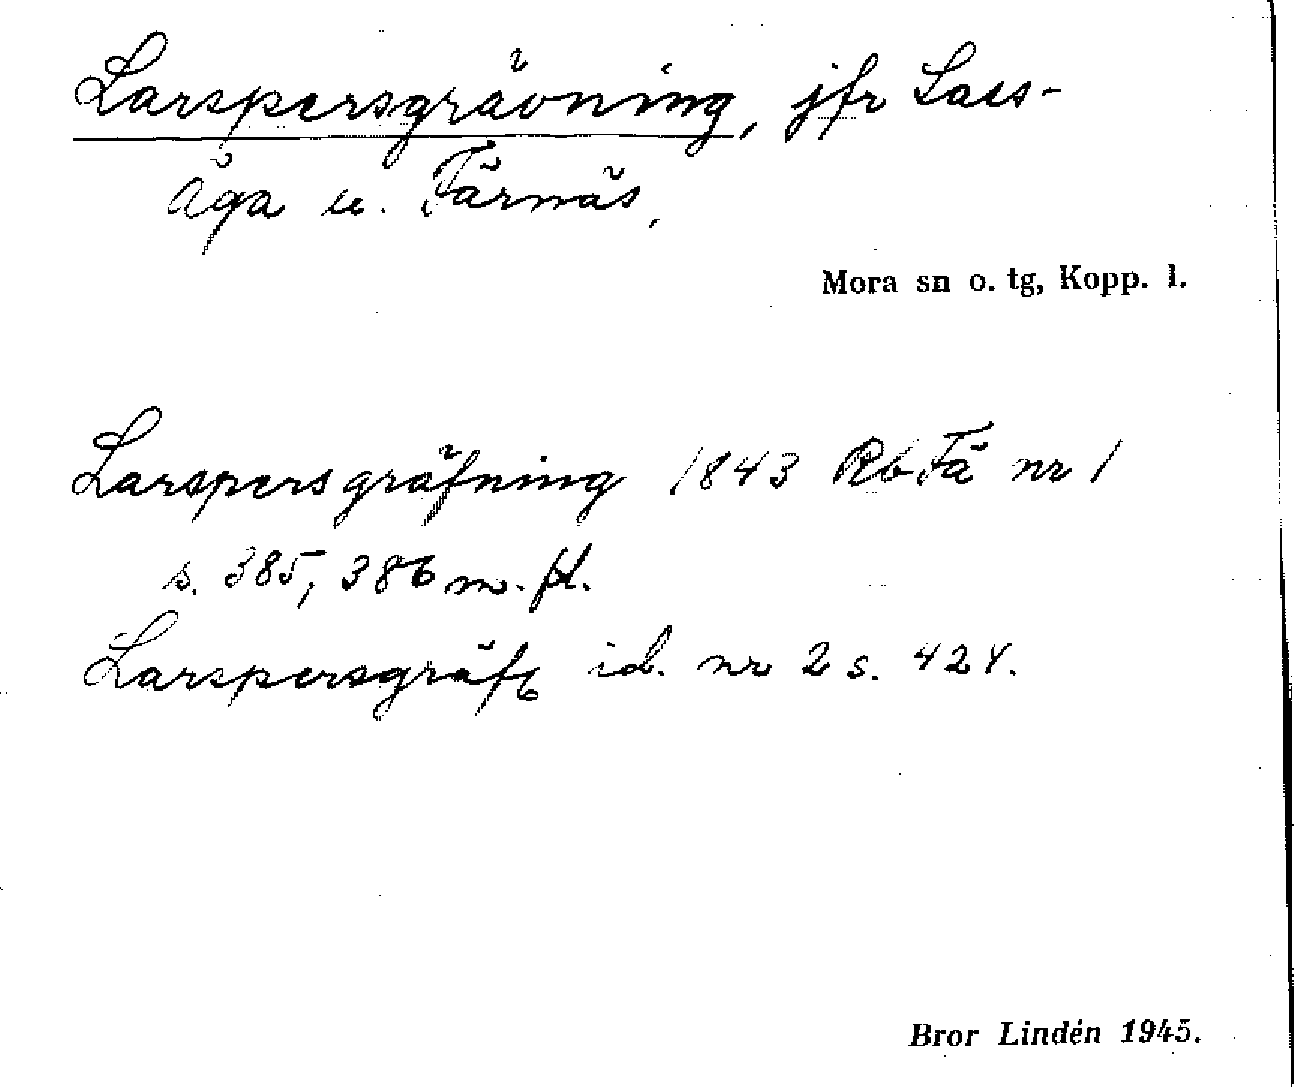 Larspersgrävning, jfr Lass-
åga u. Färnäs,
Mora sn o. tg, Kopp. l.
Larspersgräfning 1843 Rb Fä nr 1
s. 385, 386 m. fl.
Larspersgräfg id. nr 2 s. 424.
Bror Lindén 1945.